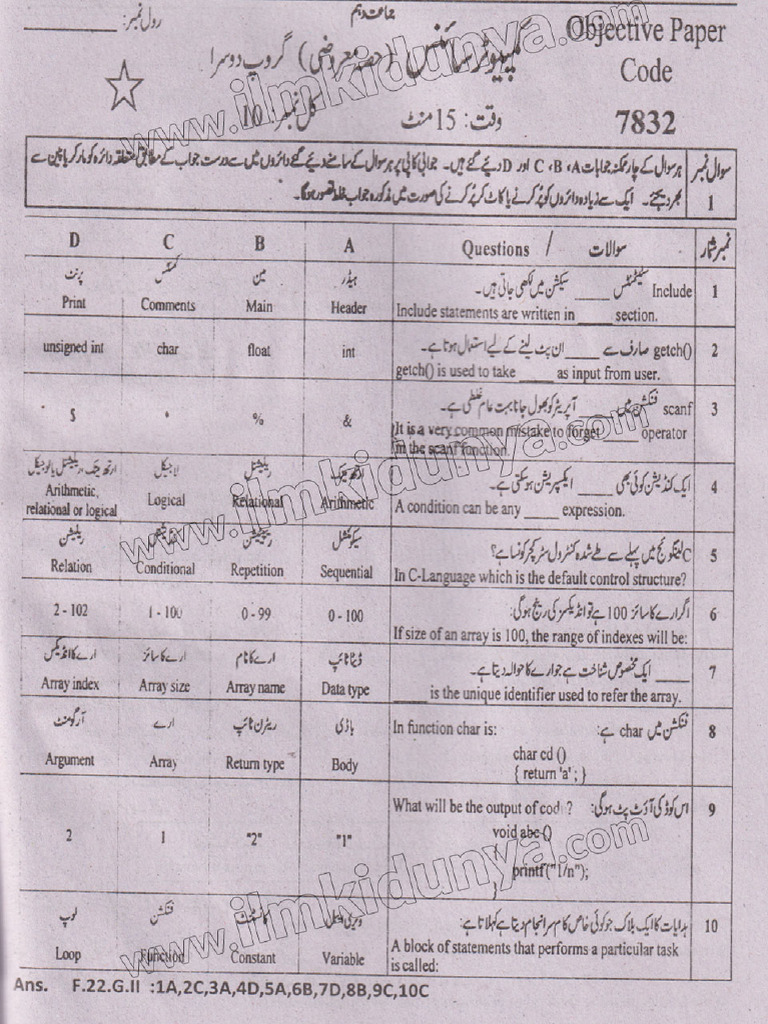 جماعت دہم
رول نمبر:
Objective Paper
Code
7832
کمپیوٹر سائنس (حصہ معروضی) گروپ دوسرا
وقت: 15 منٹ
کل نمبر: 10
سوال نمبر 1
ہر سوال کے چار ممکنہ جوابات A، B، C اور D دیئے گئے ہیں۔ جوابی کاپی پر ہر سوال کے سامنے دیئے گئے دائروں میں سے درست جواب کے مطابق متعلقہ دائرہ کو مارکر یا پین سے
بھر دیجئے۔ ایک سے زیادہ دائروں کو پُر کرنے یا کاٹ کر پُر کرنے کی صورت میں مذکورہ جواب غلط تصور ہوگا۔
D C B A Questions / سوالات نمبر شمار
پرنٹ کمنٹس مین ہیڈر Include سٹیٹمنٹس _____ سیکشن میں لکھی جاتی ہیں۔ 1
Print Comments Main Header Include statements are written in _____ section.
unsigned int char float int getch() صارف سے _____ ان پٹ لینے کے لیے استعمال ہوتا ہے۔ 2
getch() is used to take _____ as input from user.
$ % & scanf فنکشن میں _____ آپریٹر کو بھول جانا بہت عام غلطی ہے۔ 3
It is a very common mistake to forget _____ operator
in the scanf function.
ارتھمیٹک، ریلیشنل یا لوجیکل لاجیکل ریلیشنل ارتھمیٹک ایک کنڈیشن کوئی بھی _____ ایکسپریشن ہوسکتی ہے۔ 4
Arithmetic, relational or logical Logical Relational Arithmetic A condition can be any _____ expression.
ریلیشن کنڈیشنل ریپیٹیشن سیکوئنشل C لینگوئج میں پہلے سے طے شدہ کنٹرول سٹرکچر کونسا ہے؟ 5
Relation Conditional Repetition Sequential In C-Language which is the default control structure?
2 - 102 1 - 100 0 - 99 0 - 100 اگر ارے کا سائز 100 ہے تو انڈیکسز کی رینج ہوگی: 6
If size of an array is 100, the range of indexes will be:
ارے کا انڈیکس ارے کا سائز ارے کا نام ڈیٹا ٹائپ _____ ایک مخصوص شناخت ہے جو ارے کا حوالہ دیتا ہے۔ 7
Array index Array size Array name Data type _____ is the unique identifier used to refer the array.
آرگومنٹ ارے ریٹرن ٹائپ باڈی In function char is: فنکشن میں char ہے: 8
Argument Array Return type Body char cd ()
{ return 'a' ; }
What will be the output of cod ? اس کوڈ کی آؤٹ پٹ ہوگی: 9
2 1 "2" "1" void abc ()
{
printf("1/n");
}
لوپ فنکشن کانسٹنٹ ویری ایبل ہدایات کا ایک بلاک جو کوئی خاص کام سرانجام دیتا ہے کہلاتا ہے: 10
Loop Function Constant Variable A block of statements that performs a particular task
is called:
Ans. F.22.G.II :1A,2C,3A,4D,5A,6B,7D,8B,9C,10C
www.ilmkidunya.com
www.ilmkidunya.com
www.ilmkidunya.com